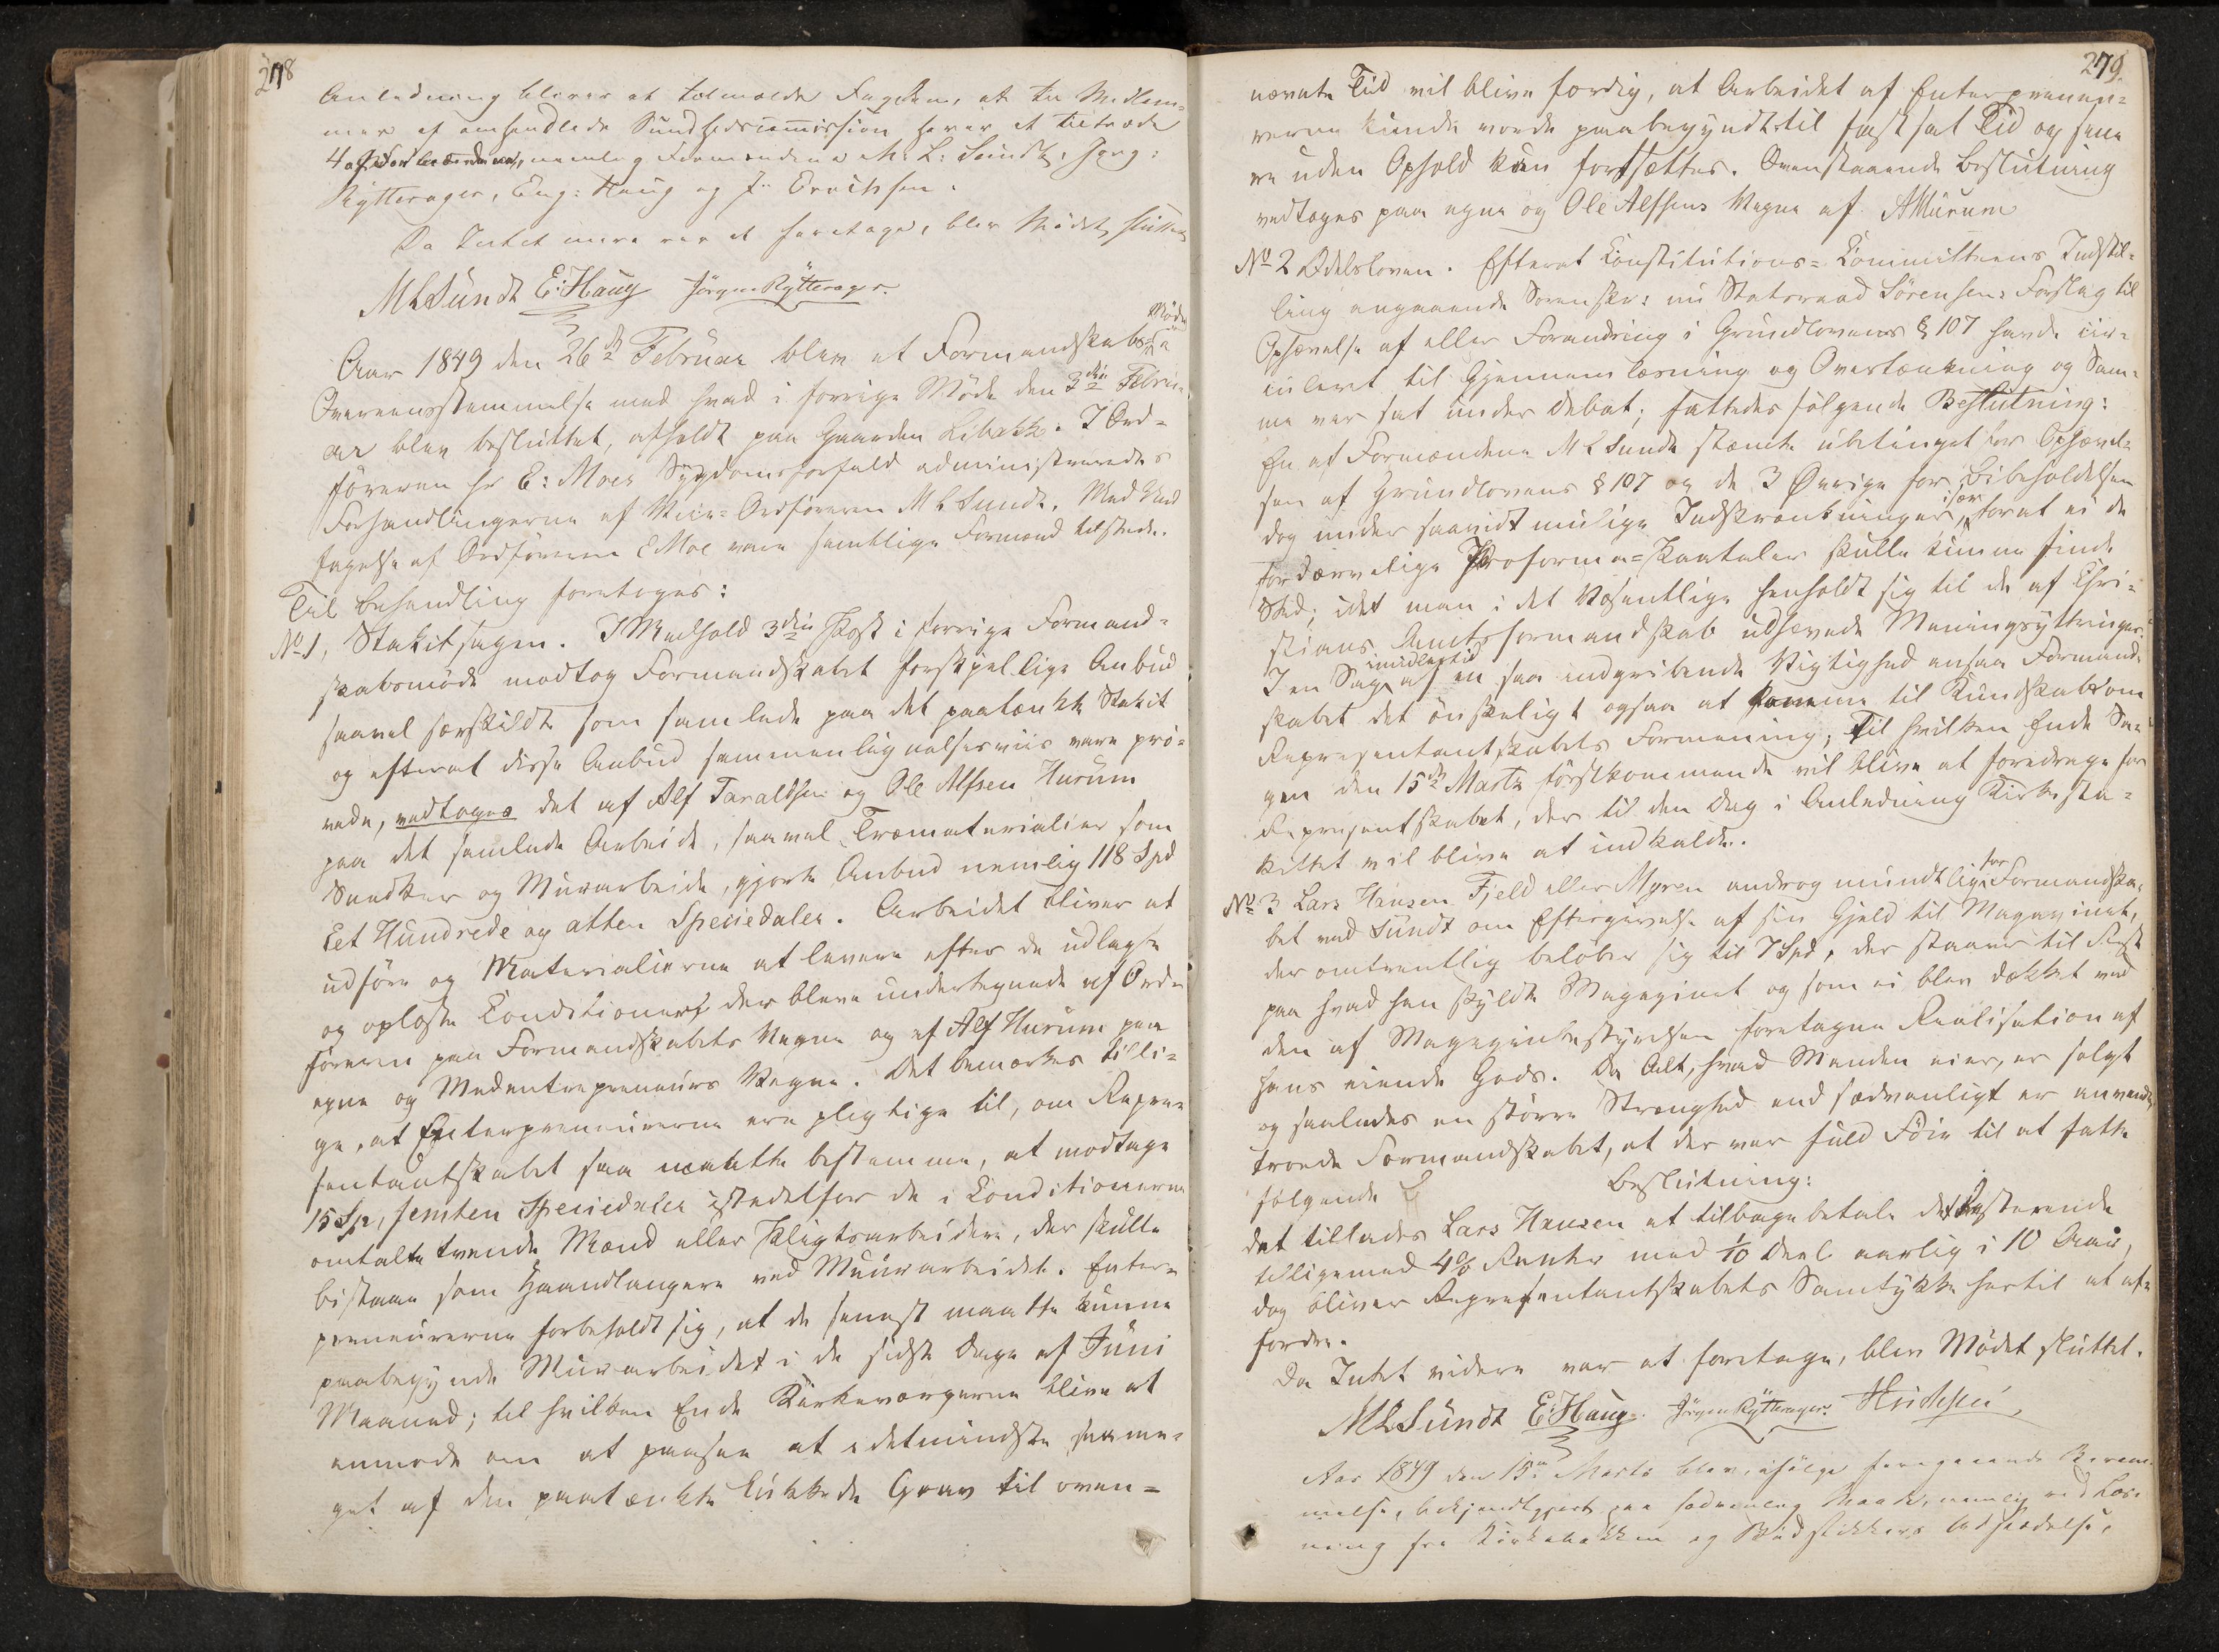 278
Anledning bliver at tilmelde Fogden, at til Medlem-
mer af omhandlede Sundhedscommission haver at tiltræde
4 af Formændene, nemlig Formændene M. L: Sundt, Jørg:
Rytterager, Eng: Haug og J. Erichsen.
Da Intet mere var at foretage, blev Mødet sluttet
MLSundt E:Haug Jörgen Rytterager.
Aar 1849 den 26de Februar blev et Formandskabs Møde i
Overeensstemmelse med hvad i forrige Møde den 3die Febru-
ar blev besluttet, afholdt paa Gaarden Libakk. I Ord-
føreren Hr E: Moes Sygdomsforfald administreredes
Forhandlingerne af Vice-Ordføreren M L Sundt. Med Und-
tagelse af Ordføreren E Moe vare samtlige Formænd tilstede.
Til Behandling foretoges:
No 1, Stakitsagen. I Medhold 3die Post i forrige Formand-
skabsmøde modtog Formandskabet forskjellige Anbud
saavel særskildt som samlede paa det paatænkte Stakit
og efterat disse Anbud sammenlignelsesviis vare prø-
vede, vedtoges det af Alf Taraldsen og Ole Alfsen Hurum
paa det samlede Arbeide, saavel Træmaterialier som
Snedker og Murarbeide, gjorte Anbud nemlig 118 Spd
Eet Hundrede og atten Speciedaler. Arbeidet bliver at
udføre og Materialierne at levere efter de udlagte
og oplæste Conditioner der bleve undertegnede af Ord-
føreren paa Formandskabets Vegne og af Alf Hurum paa
egne og Medentrepreneurs Vegne. Det bemærkes tilli-
ge, at Enterpreneurerne ere pligtige til, om Repre-
sentantskabet saa maatte bestemme, at modtage
15 Sp, femten Speciedaler istedetfor de i Conditionerne
omtalte tvende Mænd eller Pligtsarbeidere, der skulle
bistaae som Haandlangere ved Muurarbeidet. Enter-
preneurerne forbeholdt sig, at de senest maatte kunne
paabegynde Murarbeidet i de sidste Dage af Juni
Maaned; til hvilken Ende Kirkeværgerne blive at
anmode om at paasee at idetmindste saame-
get af den paatænkte lukkede Grav til oven-
279.
nævnte Tid vil blive færdig, at Arbeidet af Enterpreneu-
rerne kunde vorde paabegyndt til fastsat Tid og sene-
re uden Ophold kan fortsættes. Ovenstaaende Beslutning
vedtoges paa egne og Ole Alfsens Vegne af AHurum
No 2 Odelsloven. Efterat Constitutions-Committeens Indstil-
ling angaaende Sorenskr: nu Statsraad Sörensens Forslag til
Ophævelse af eller Forandring i Grundlovens § 107 havde cir-
culeret til Gjennemlæsning og Overtænkning og Sam-
me var sat under Debat, fattedes følgende Beslutning:
En af Formændene M L Sundt stemte ubetinget for Ophævel-
sen af Grundlovens § 107 og de 3 Øvrige for Bibeholdelsen
dog under saavidt mulige Indskrænkninger, især forat ei de
fordærvelige Proforma-Skautaler skulle kunne finde
Sted; idet man i det Væsentlige henholdt sig til de af Chri-
stians Amtsformandskab udhævede Meningsyttringer.
I en Sag imidlertid af en saa indgribende Vigtighed ansaa Formand-
skabet det ønskeligt ogsaa at komme til Kundskab om
Representantskabets Formening; Til hvilken Ende Sa-
gen den 15de Marts førstkommende vil blive at foredrage for
Representskabet, der til den Dag i Anledning Kirkesta-
kittet vil blive at indkalde.
No 3 Lars Hansen Fjeld eller Myren androg mundtlig for Formandska-
bet ved Sundt om Eftergivelse af sin Gjeld til Magazinet,
der omtrentlig beløber sig til 7 Spd, der staaer til Rest
paa hvad han skyldte Magazinet og som ei blev dækket ved
den af Magazinbestyrelsen foretagne Realisation af
hans eiende Gods. Da Alt, hvad Manden eier, er solgt
og saaledes en større Strenghed end sædvanligt er anvendt,
troede Formandskabet, at der var fuld Føie til at fatte
følgende Beslutning:
det tillades Lars Hansen at tilbagebetale det Resterende
tilligemed 4% Renter med 1/10 Deel aarlig i 10 Aar,
dog bliver Representantskabets Samtykke hertil at af-
fordre.
Da Intet videre var at foretage, blev Mødet sluttet.
MLSundt E:Haug. Jörgen Rytterager.
Aar 1849 den 15de Marts blev, ifølge foregaaende Beram-
melse, bekjendtgjort paa sædvanlig Maade, nemlig ved Læs-
ning fra Kirkebakken og Budstikkers Udstædelse,